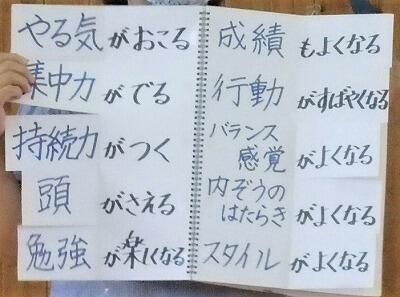 やる気がおこる
集中力がでる
持続力がつく
頭がさえる
勉強が楽しくなる
成績もよくなる
行動がすばやくなる
バランス
感覚がよくなる
内ぞうの
はたらきがよくなる
スタイルがよくなる